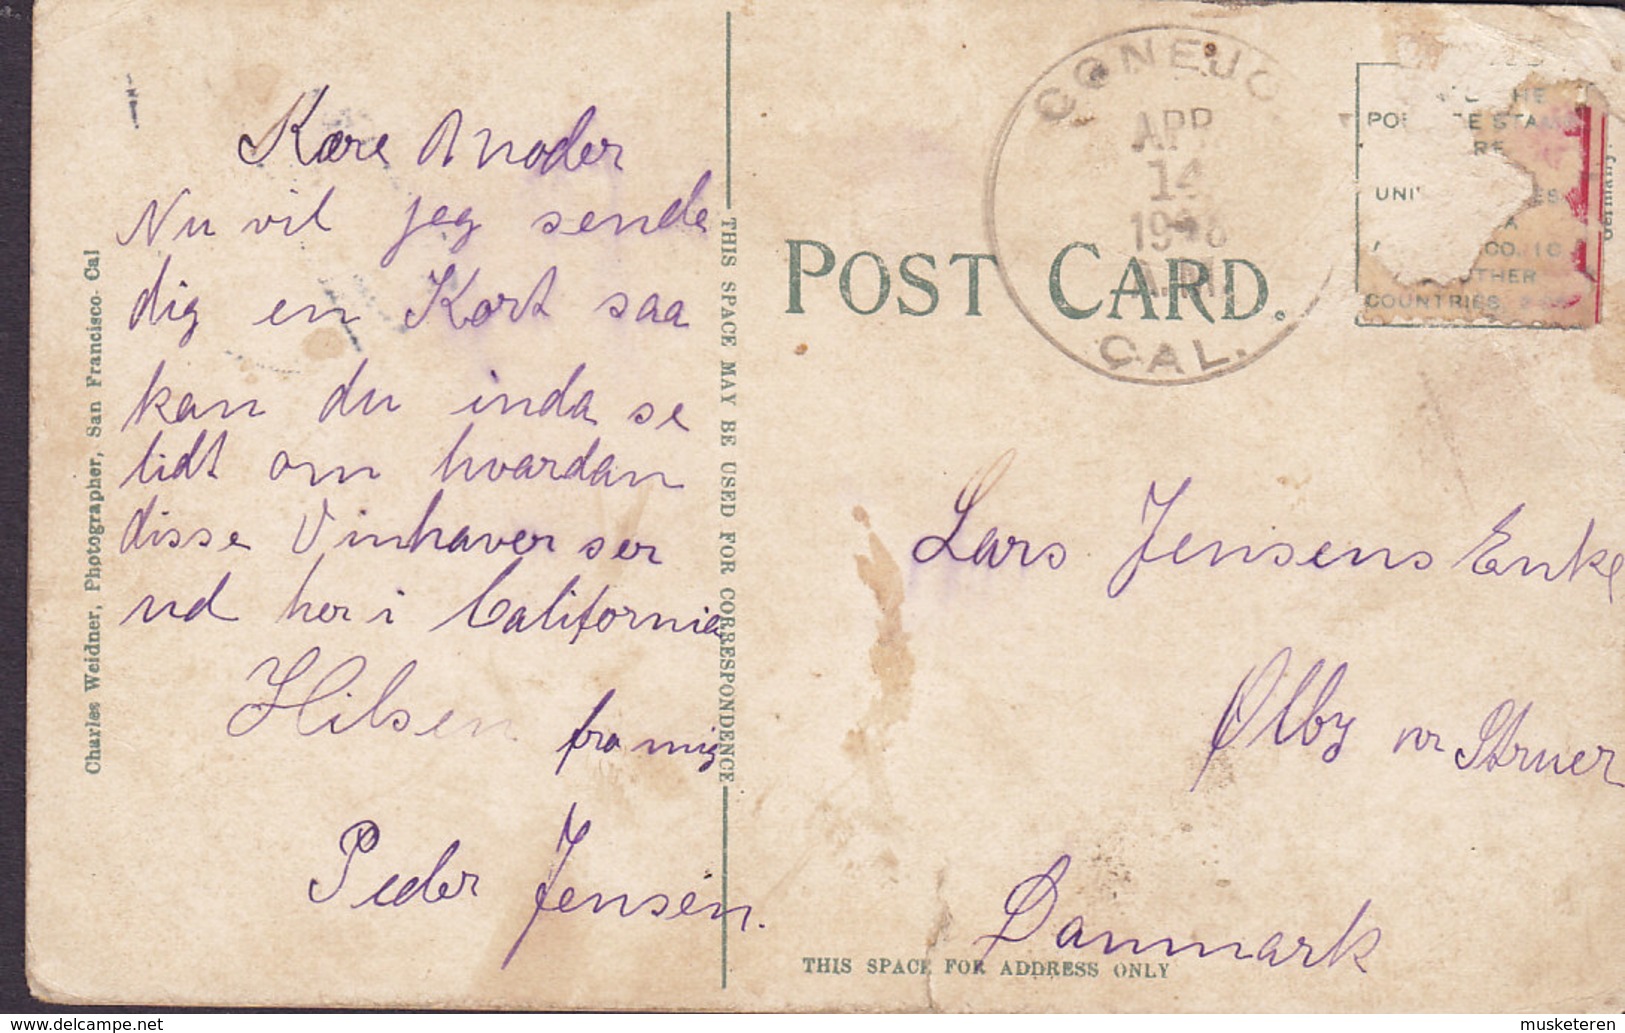 Kære Moder
Nu vil jeg sende
dig en Kort saa
kan du inda se
lidt om hvordan
disse Vinhaver ser
ud her i California
Hilsen fra mig
Peder Jensen.
Charles Weidner, Photographer, San Francisco. Cal
THIS SPACE MAY BE USED FOR CORRESPONDENCE
POST CARD.
CONEJO
APR
14
A.M.
CAL.
COUNTRIES
Germany.
Lars Jensens Enke
Ølby nr Struer
Danmark
THIS SPACE FOR ADDRESS ONLY
musketeren on delcampe.net